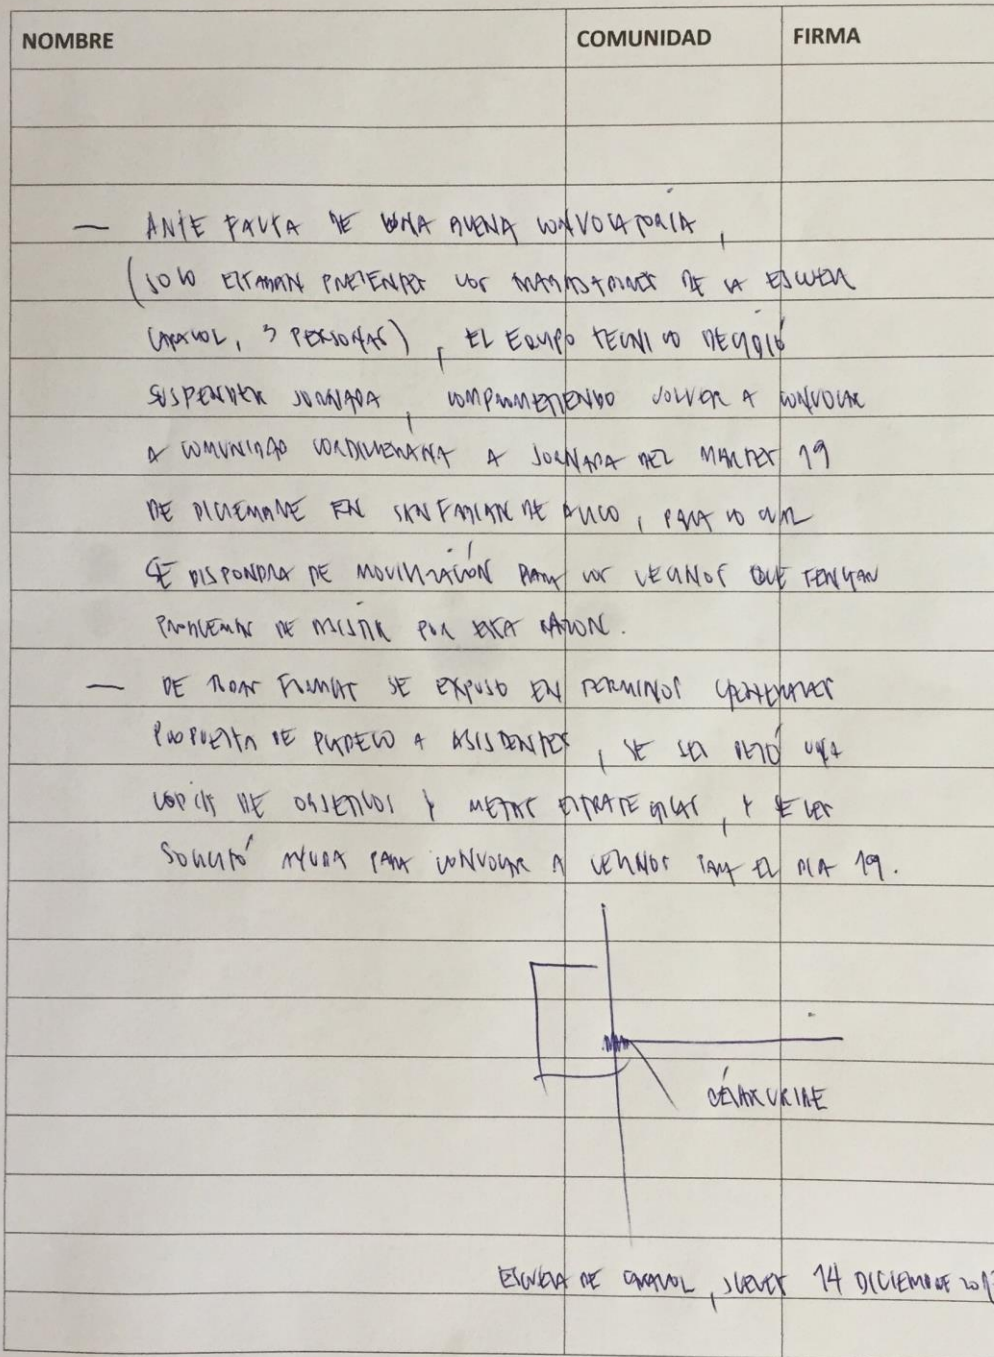 NOMBRE COMUNIDAD FIRMA
— ANTE FALTA DE UNA BUENA CONVOCATORIA,
(SOLO ESTABAN PRESENTES LOS DE LA ESCUELA
CARACOL, 3 PERSONAS), EL EQUIPO TECNICO DECIDIÓ
SUSPENDER JORNADA, COMPROMETIENDO VOLVER A CONVOCAR
A COMUNIDAD CORDILLERANA A JORNADA DEL MARTES 19
DE DICIEMBRE EN SAN FABIAN DE ALICO, PARA LO CUAL
SE DISPONDRA DE MOVILIZACIÓN PARA LOS VECINOS QUE TENGAN
PROBLEMAS DE ASISTIR POR ESTA RAZON.
— DE TODAS FORMAS SE EXPUSO EN TERMINOS GENERALES
PROPUESTA DE PLADECO A ASISTENTES, SE LES DEJÓ UNA
COPIA DE OBJETIVOS Y METAS ESTRATEGICAS, Y SE LES
SOLICITÓ AYUDA PARA CONVOCAR A VECINOS PARA EL DIA 19.
CÉSAR URIBE
ESCUELA DE CARACOL, JUEVES 14 DICIEMBRE 201